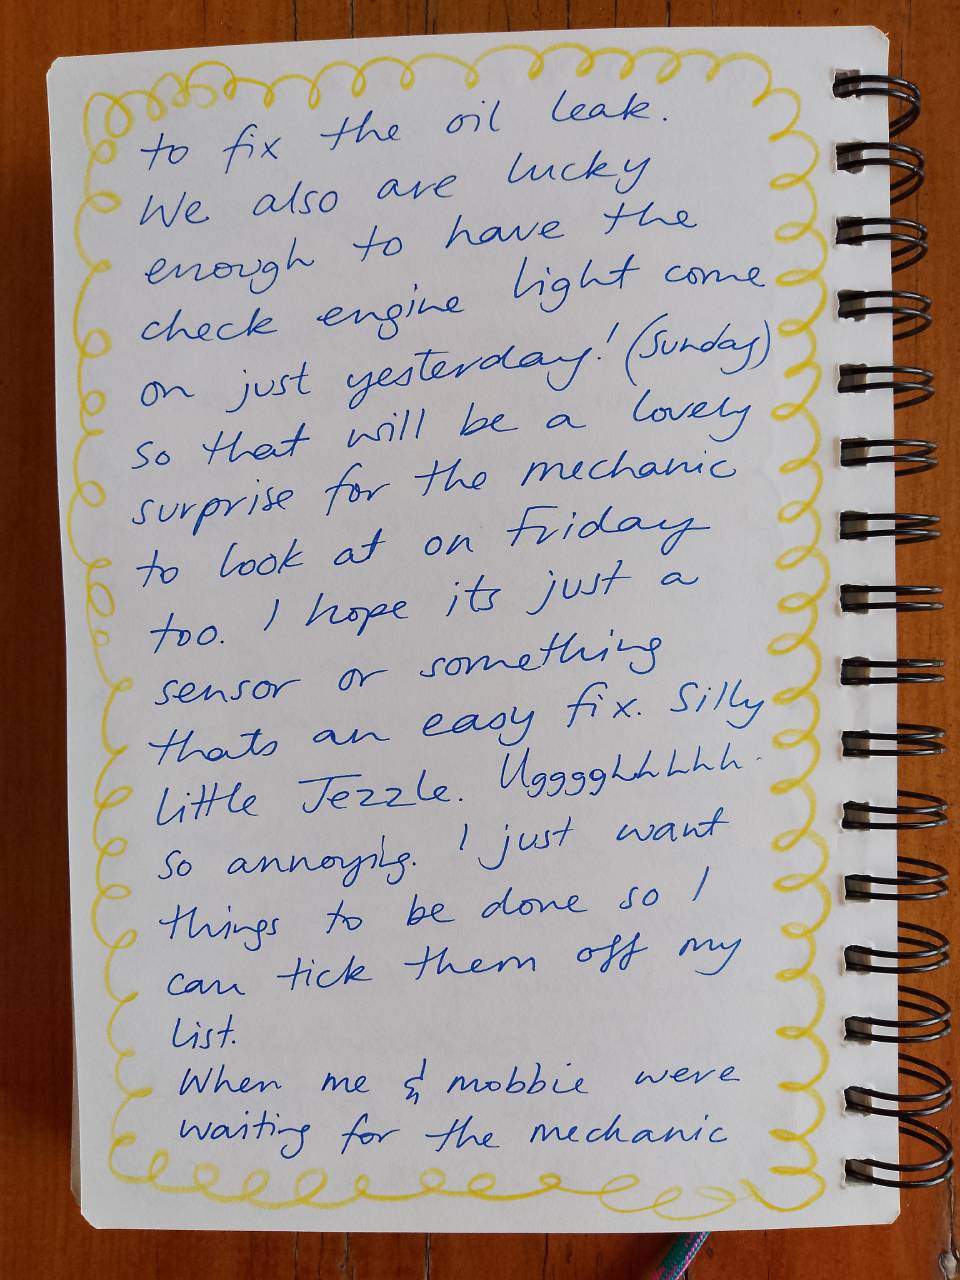 to fix the oil leak.
We also are lucky
enough to have the
check engine light come
on just yesterday! (Sunday)
so that will be a lovely
surprise for the mechanic
to look at on Friday
too. I hope its just a
sensor or something
thats an easy fix. Silly
little Jezzle. Ugggghhhhh.
so annoying. I just want
things to be done so I
can tick them off my
list.
When me & mobbie were
waiting for the mechanic